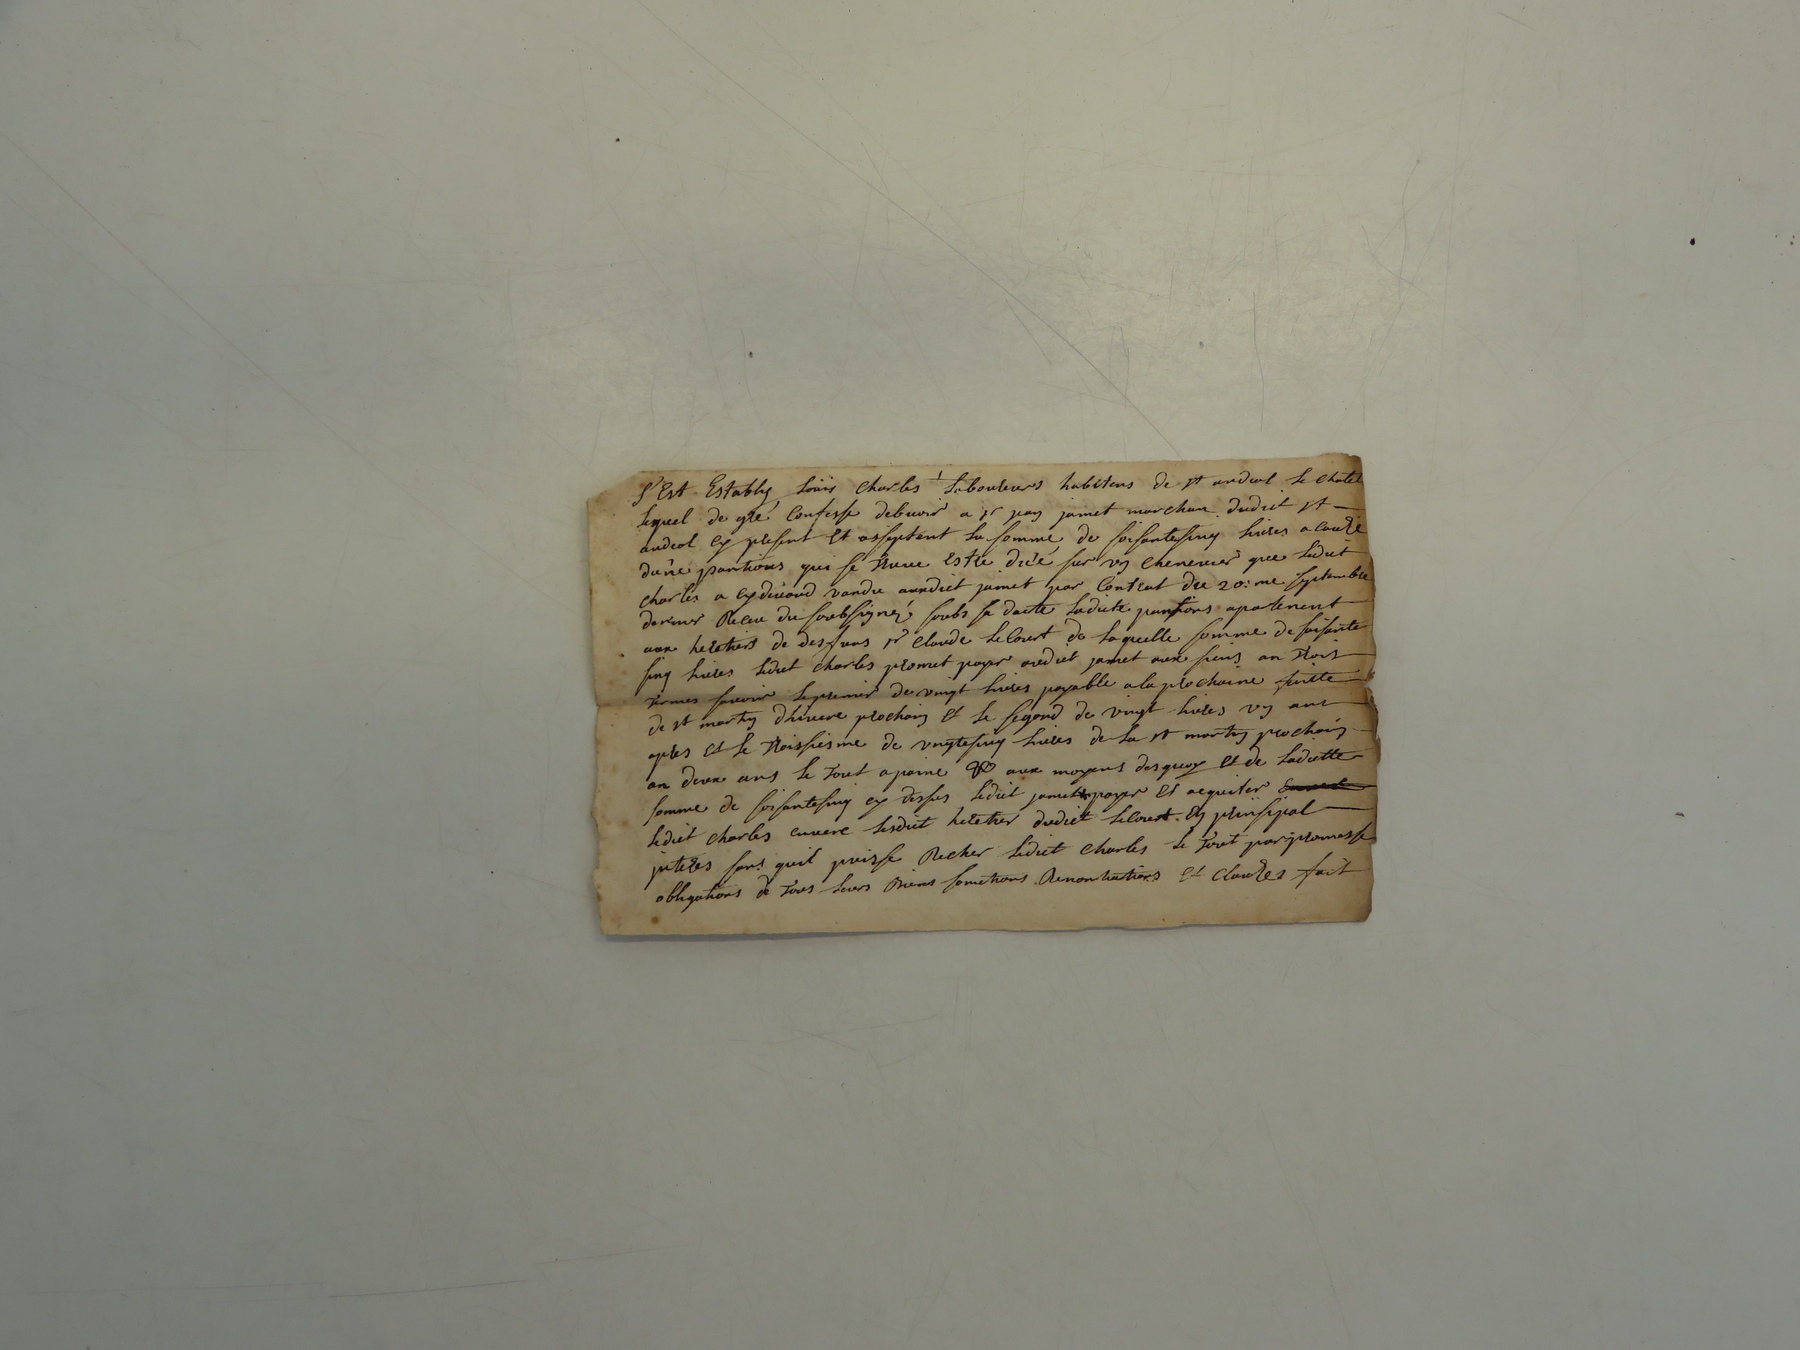 S'Est Estably Loüis Charles Laboureurs habitens de st andeol le chatel
lequel de gré confesse debuoir a sr jean jamet marchan dudict st
andeol ey present Et asseptent la somme de soisantesinq livres a cauze
dune pantions qui se treuve Estre düé sur vn chenevier que ledict
charles a cydeuand vandu aundict jamet par Contrat du 20:me septembre
dernier Receu du soubsigné soubs sa datte ladicte pantions apartenent
aux heretiers de desfuns sr Claude Lecourt de laquelle somme de soisante
sinq livres ledict charles promet payer audict jamet aux siens an trois
termes savoir le premier de vingt livres payable a la prochaine feste
de st martin dhivere prochain Et le segond de vingt livres vn ant
apres Et le troissiesme de vingtesinq livres de la st martin prochain
an deux ans le tout apaine aux moyens desquoy Et de ladictte
somme de soisantesinq ey dessus ledict jamet payer Et acquiter
ledict charles envere lesdict heretier dudict Lecourt En prinsipal
jnteres sans quil puisse Recher ledict charles le tout par promesse
obligations de tous leurs biens soumitions Renontiations Et clauzes fait